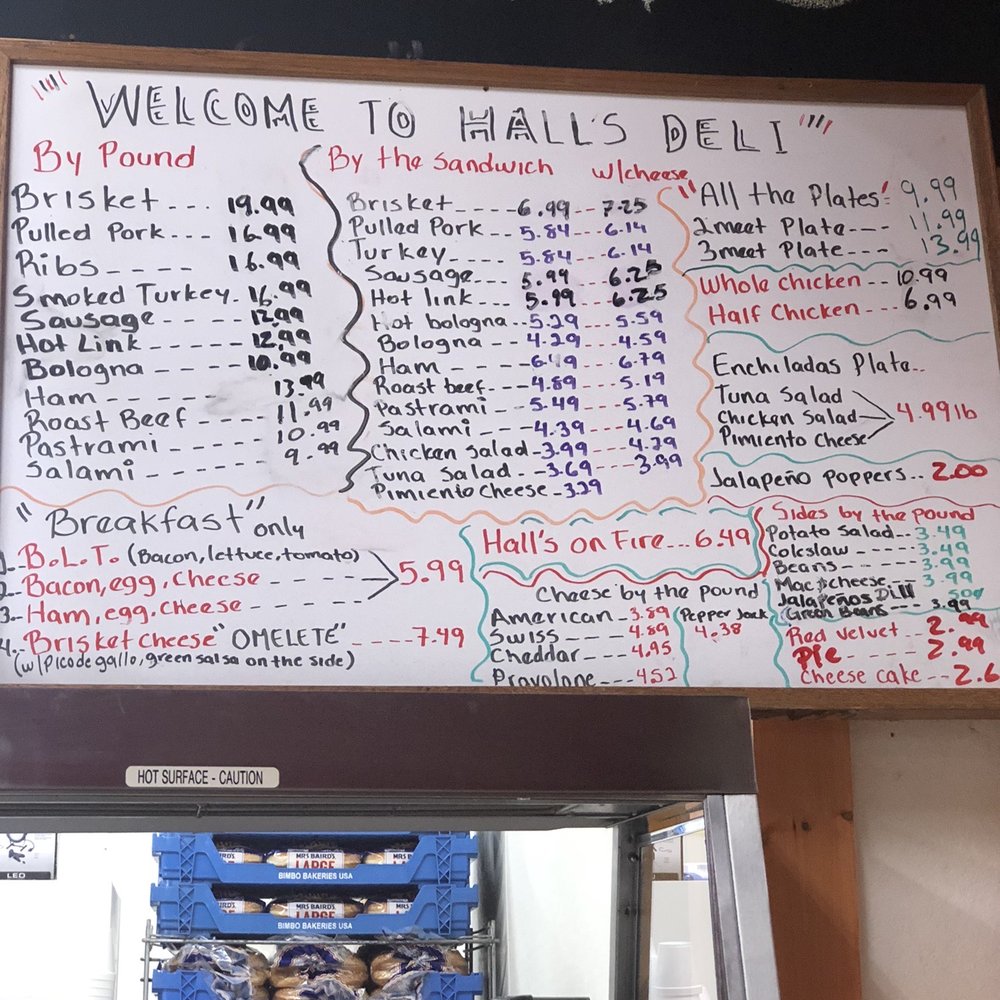 "WELCOME TO HALL'S DELI"
By Pound
Brisket --- 19.99
Pulled Pork --- 16.99
Ribs ---- 16.99
Smoked Turkey - 16.99
Sausage ------ 12.99
Hot Link ----- 12.99
Bologna ----- 10.99
Ham ------ 13.99
Roast Beef ---- 11.99
Pastrami ----- 10.99
Salami ------ 9.99
By the Sandwich w/cheese
Brisket ---- 6.99 --- 7.25
Pulled Pork -- 5.84 --- 6.14
Turkey ---- 5.84 --- 6.14
Sausage --- 5.99 --- 6.25
Hot link --- 5.99 --- 6.25
Hot bologna -- 5.29 --- 5.59
Bologna --- 4.29 --- 4.59
Ham ---- 6.49 --- 6.79
Roast beef --- 4.89 --- 5.19
Pastrami --- 5.49 --- 5.79
Salami --- 4.39 --- 4.69
Chicken Salad - 3.99 --- 4.29
Tuna Salad -- 3.69 --- 3.99
Pimiento Cheese - 3.29
"All the Plates": 9.99
2 meat Plate --- 11.99
3 meat Plate --- 13.99
Whole Chicken -- 10.99
Half Chicken --- 6.99
Enchiladas Plate..
Tuna Salad
Chicken Salad 4.99 lb
Pimiento Cheese
Jalapeño poppers.. 2.00
"Breakfast" only
1.- B.L.T. (Bacon, lettuce, tomato)
2.- Bacon, egg, cheese ---- 5.99
3.- Ham, egg, cheese ----
4.- Brisket cheese "OMELETE" ---- 7.49
(w/picodegallo, green salsa on the side)
Hall's on Fire... 6.49
Cheese by the pound
American - 3.89
Swiss --- 4.89
Cheddar --- 4.95
Provalone --- 4.52
Pepper Jack
4.38
Sides by the pound
Potato Salad -- 3.49
Coleslaw ---- 3.49
Beans --- 3.99
Mac & cheese --- 3.99
Jalapeños Dill 50¢
Green Beans --- 3.99
Red velvet -- 2.99
Pie ----- 2.99
Cheese cake -- 2.6
HOT SURFACE - CAUTION
LED
MRS BAIRD'S
LARGE
BIMBO BAKERIES USA
MRS BAIRD'S
LARGE
BIMBO BAKERIES USA